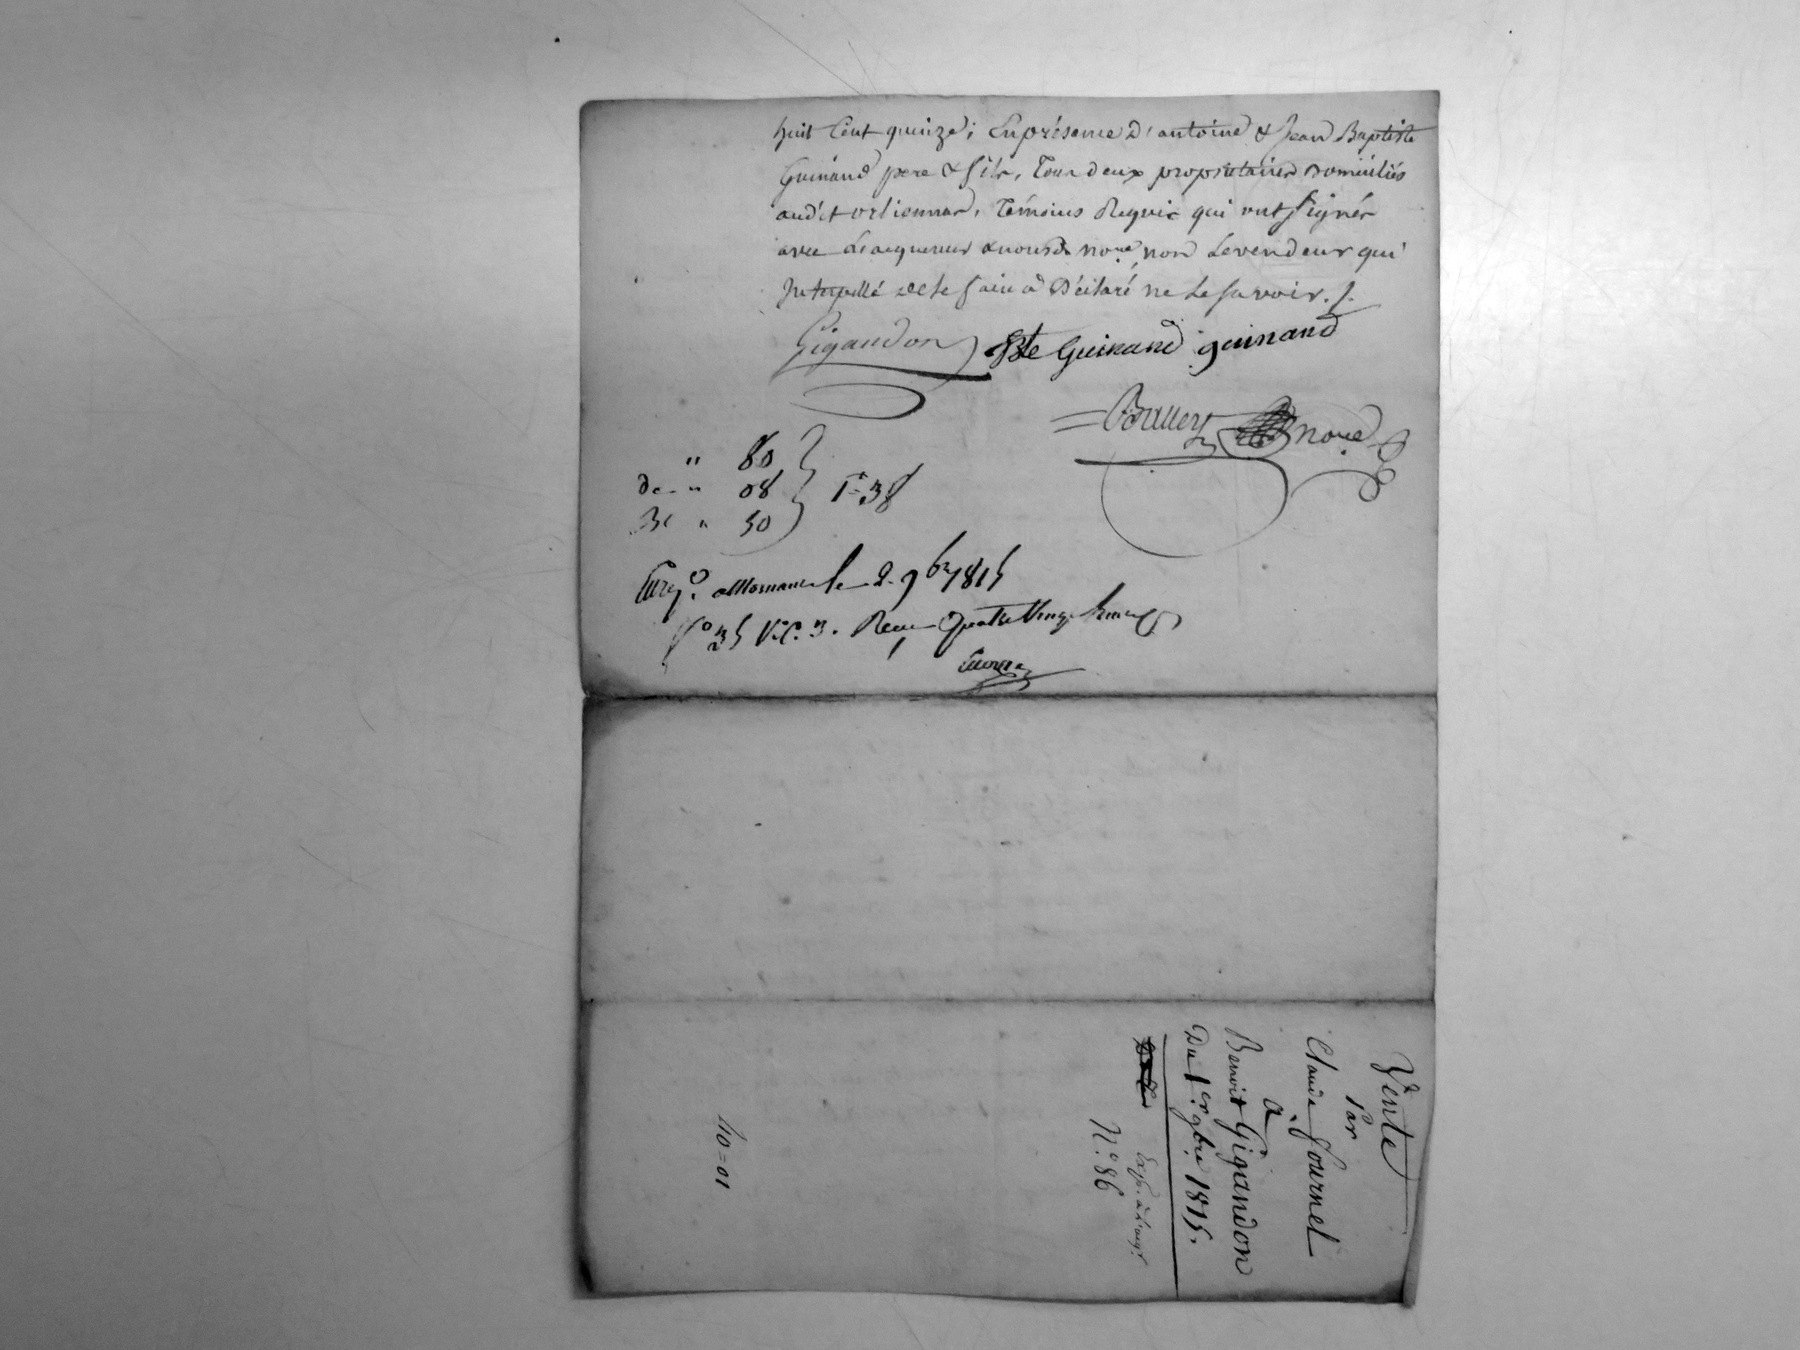 huit Cent quinze; En présence d'antoine & Jean Baptiste
Guinand pere & fils, Tous deux propriétaires Domiciliés
audit orliennas, Témoins Requis qui ont signés
avec L'acquereur & nous de no.re non Le vendeur qui
Interpellé de le faire a Déclaré ne Le savoir./.
Gigandon Bte Guinand guinand
Boiller no.re
" 80
De " 08
" 50
1f=38
Enreg.é à Mornant le 2. 9bre 1815
f.o 35 V.C. 3. Reçu Quatre Vingt
Vente
Par
Claude Fournel
à
Benoit Gigandon
Du 1er 9bre 1815.
N.o 86
40=01